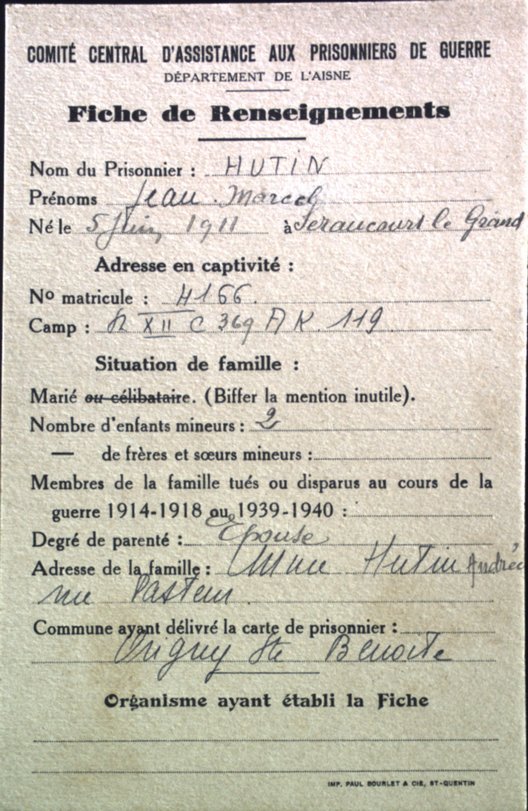 COMITÉ CENTRAL D'ASSISTANCE AUX PRISONNIERS DE GUERRE
DÉPARTEMENT DE L'AISNE
Fiche de Renseignements
Nom du Prisonnier : HUTIN
Prénoms Jean Marcel
Né le 5 Juin 1911 à Seraucourt le Grand
Adresse en captivité :
No matricule : 4166.
Camp : XII C 369 A K. 119
Situation de famille :
Marié ou célibataire. (Biffer la mention inutile).
Nombre d'enfants mineurs : 2
— de frères et sœurs mineurs :
Membres de la famille tués ou disparus au cours de la
guerre 1914-1918 ou 1939-1940 :
Degré de parenté : Epouse
Adresse de la famille : Mme Hutin Andrée
rue Pasteur.
Commune ayant délivré la carte de prisonnier :
Origny Ste Benoite
Organisme ayant établi la Fiche
IMP. PAUL BOURLET & CIE, ST-QUENTIN